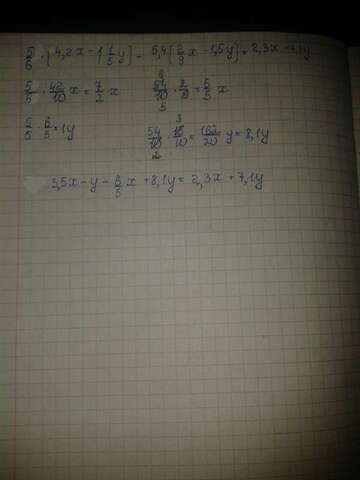 5/6 · (4,2x - 1 1/5 y) - 5,4(2/9 x - 1,5y) = 2,3x + 7,1y
5/6 · 42/10 x = 7/2 x    54/10 · 2/9 = 6/5 x
5/6 · 6/5 = 1y    54/10 · 15/10 = 162/20 y = 8,1y
3,5x - y - 6/5 x + 8,1y = 2,3x + 7,1y